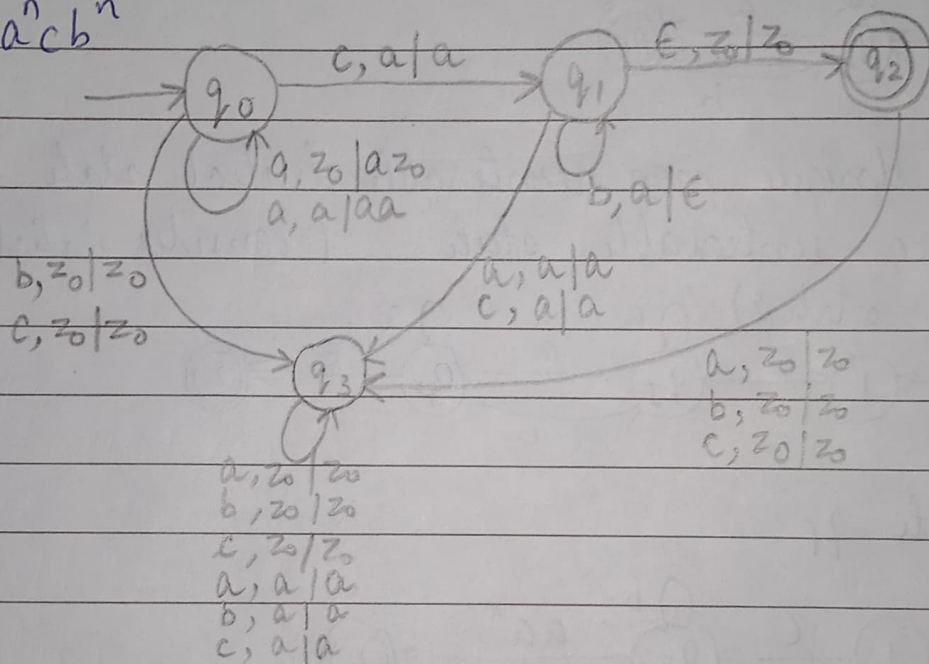 aⁿcbⁿ
c, a|a
ϵ, z₀|z₀
q₀
q₁
q₂
a, z₀|az₀
a, a|aa
b, a|ϵ
b, z₀|z₀
c, z₀|z₀
a, a|a
c, a|a
q₃
a, z₀|z₀
b, z₀|z₀
c, z₀|z₀
a, z₀|z₀
b, z₀|z₀
c, z₀|z₀
a, a|a
b, a|a
c, a|a